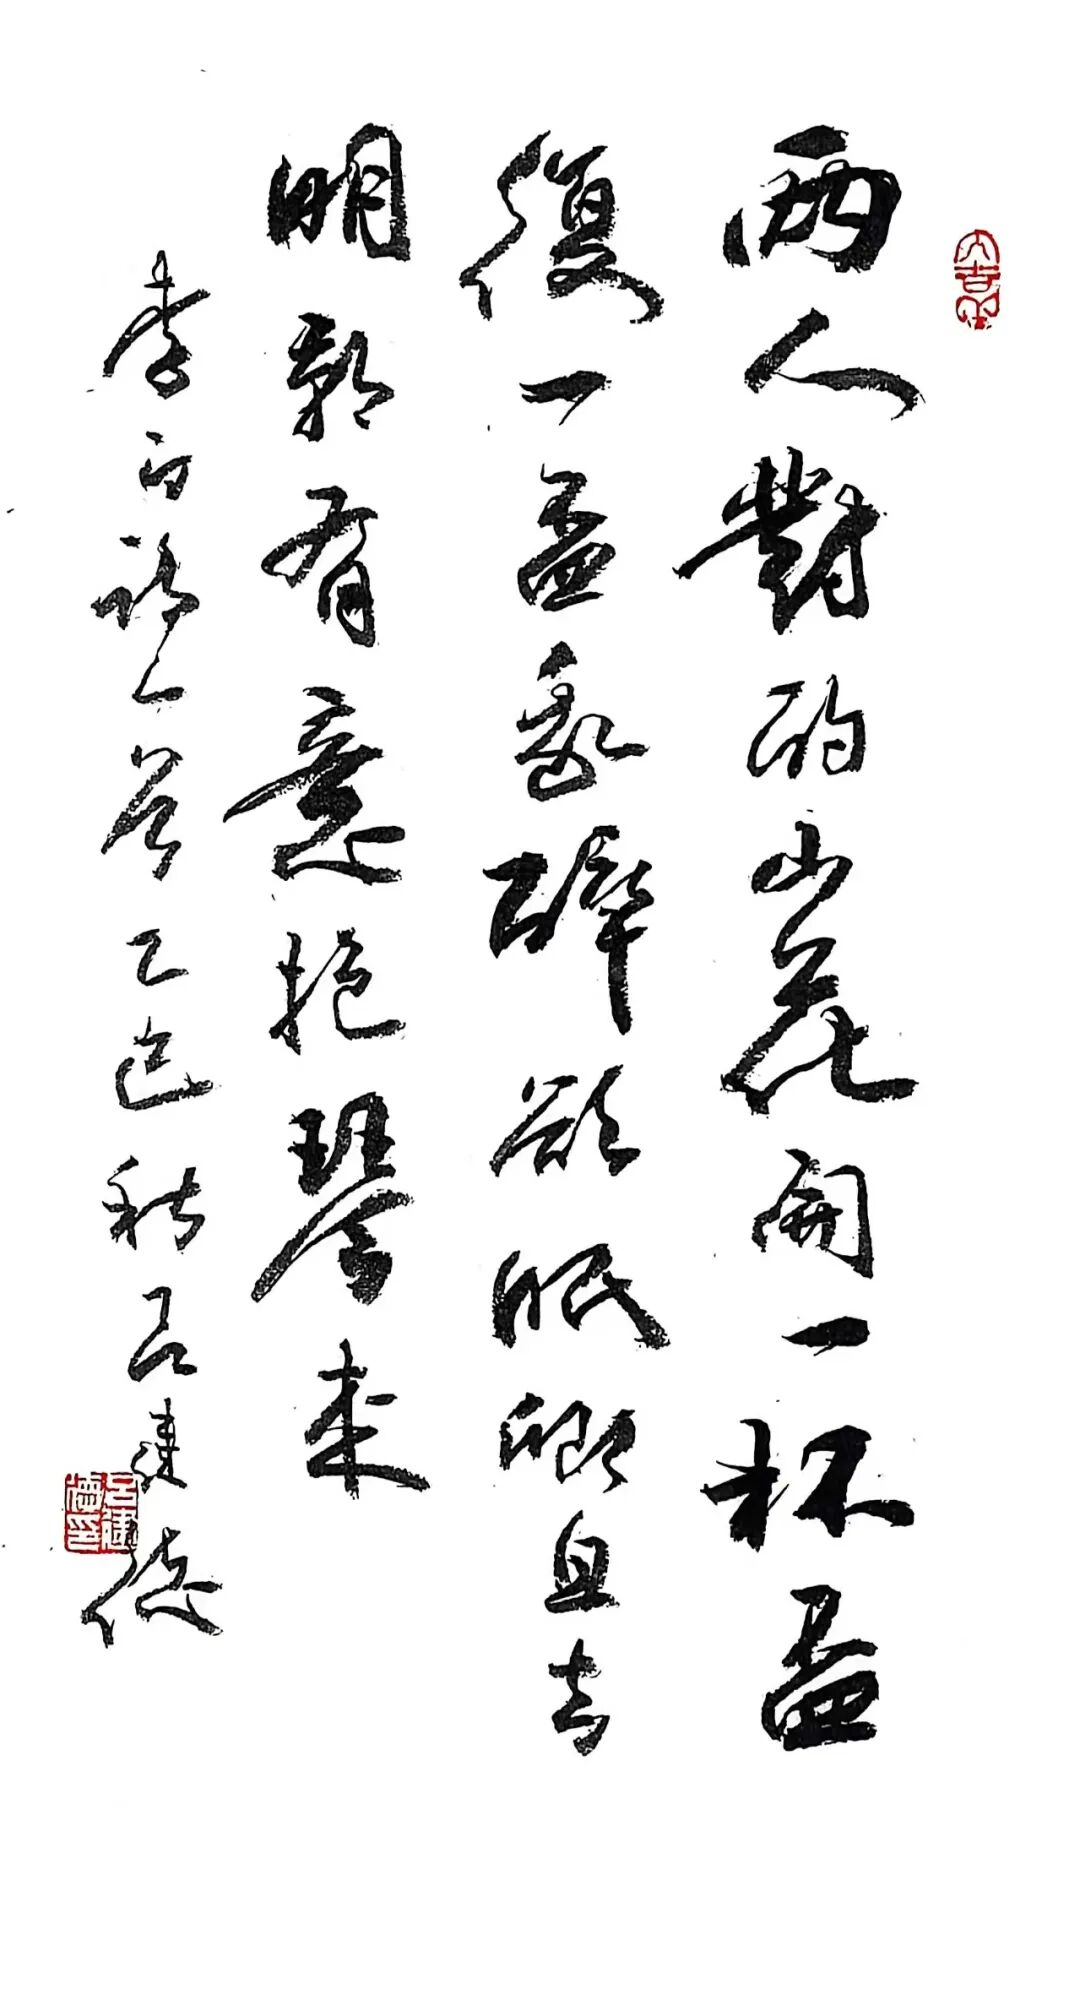 兩人對酌山花開一杯盃
復一盃我醉欲眠卿且去
明朝有意抱琴來
李白詩一首 乙巳秋 呂建德
呂建德印